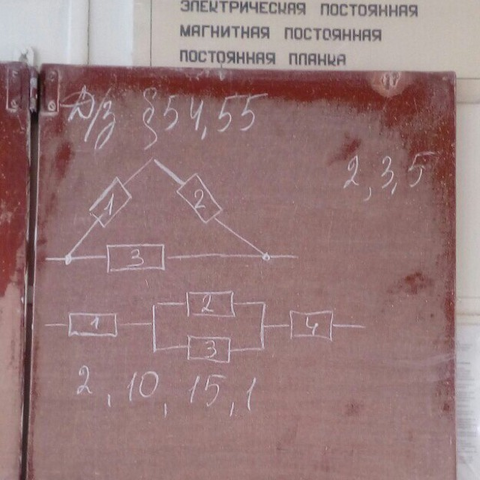 ЭЛЕКТРИЧЕСКАЯ ПОСТОЯННАЯ
МАГНИТНАЯ ПОСТОЯННАЯ
ПОСТОЯННАЯ ПЛАНКА
Д/з §54,55
2, 3, 5
1 2
3
2
1 4
3
2, 10, 15, 1